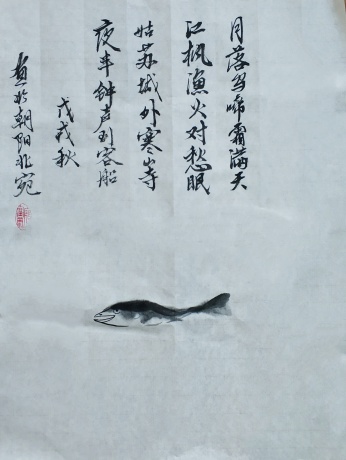 月落乌啼霜满天
江枫渔火对愁眠
姑苏城外寒山寺
夜半钟声到客船
戊戌秋
画于朝阳北宛